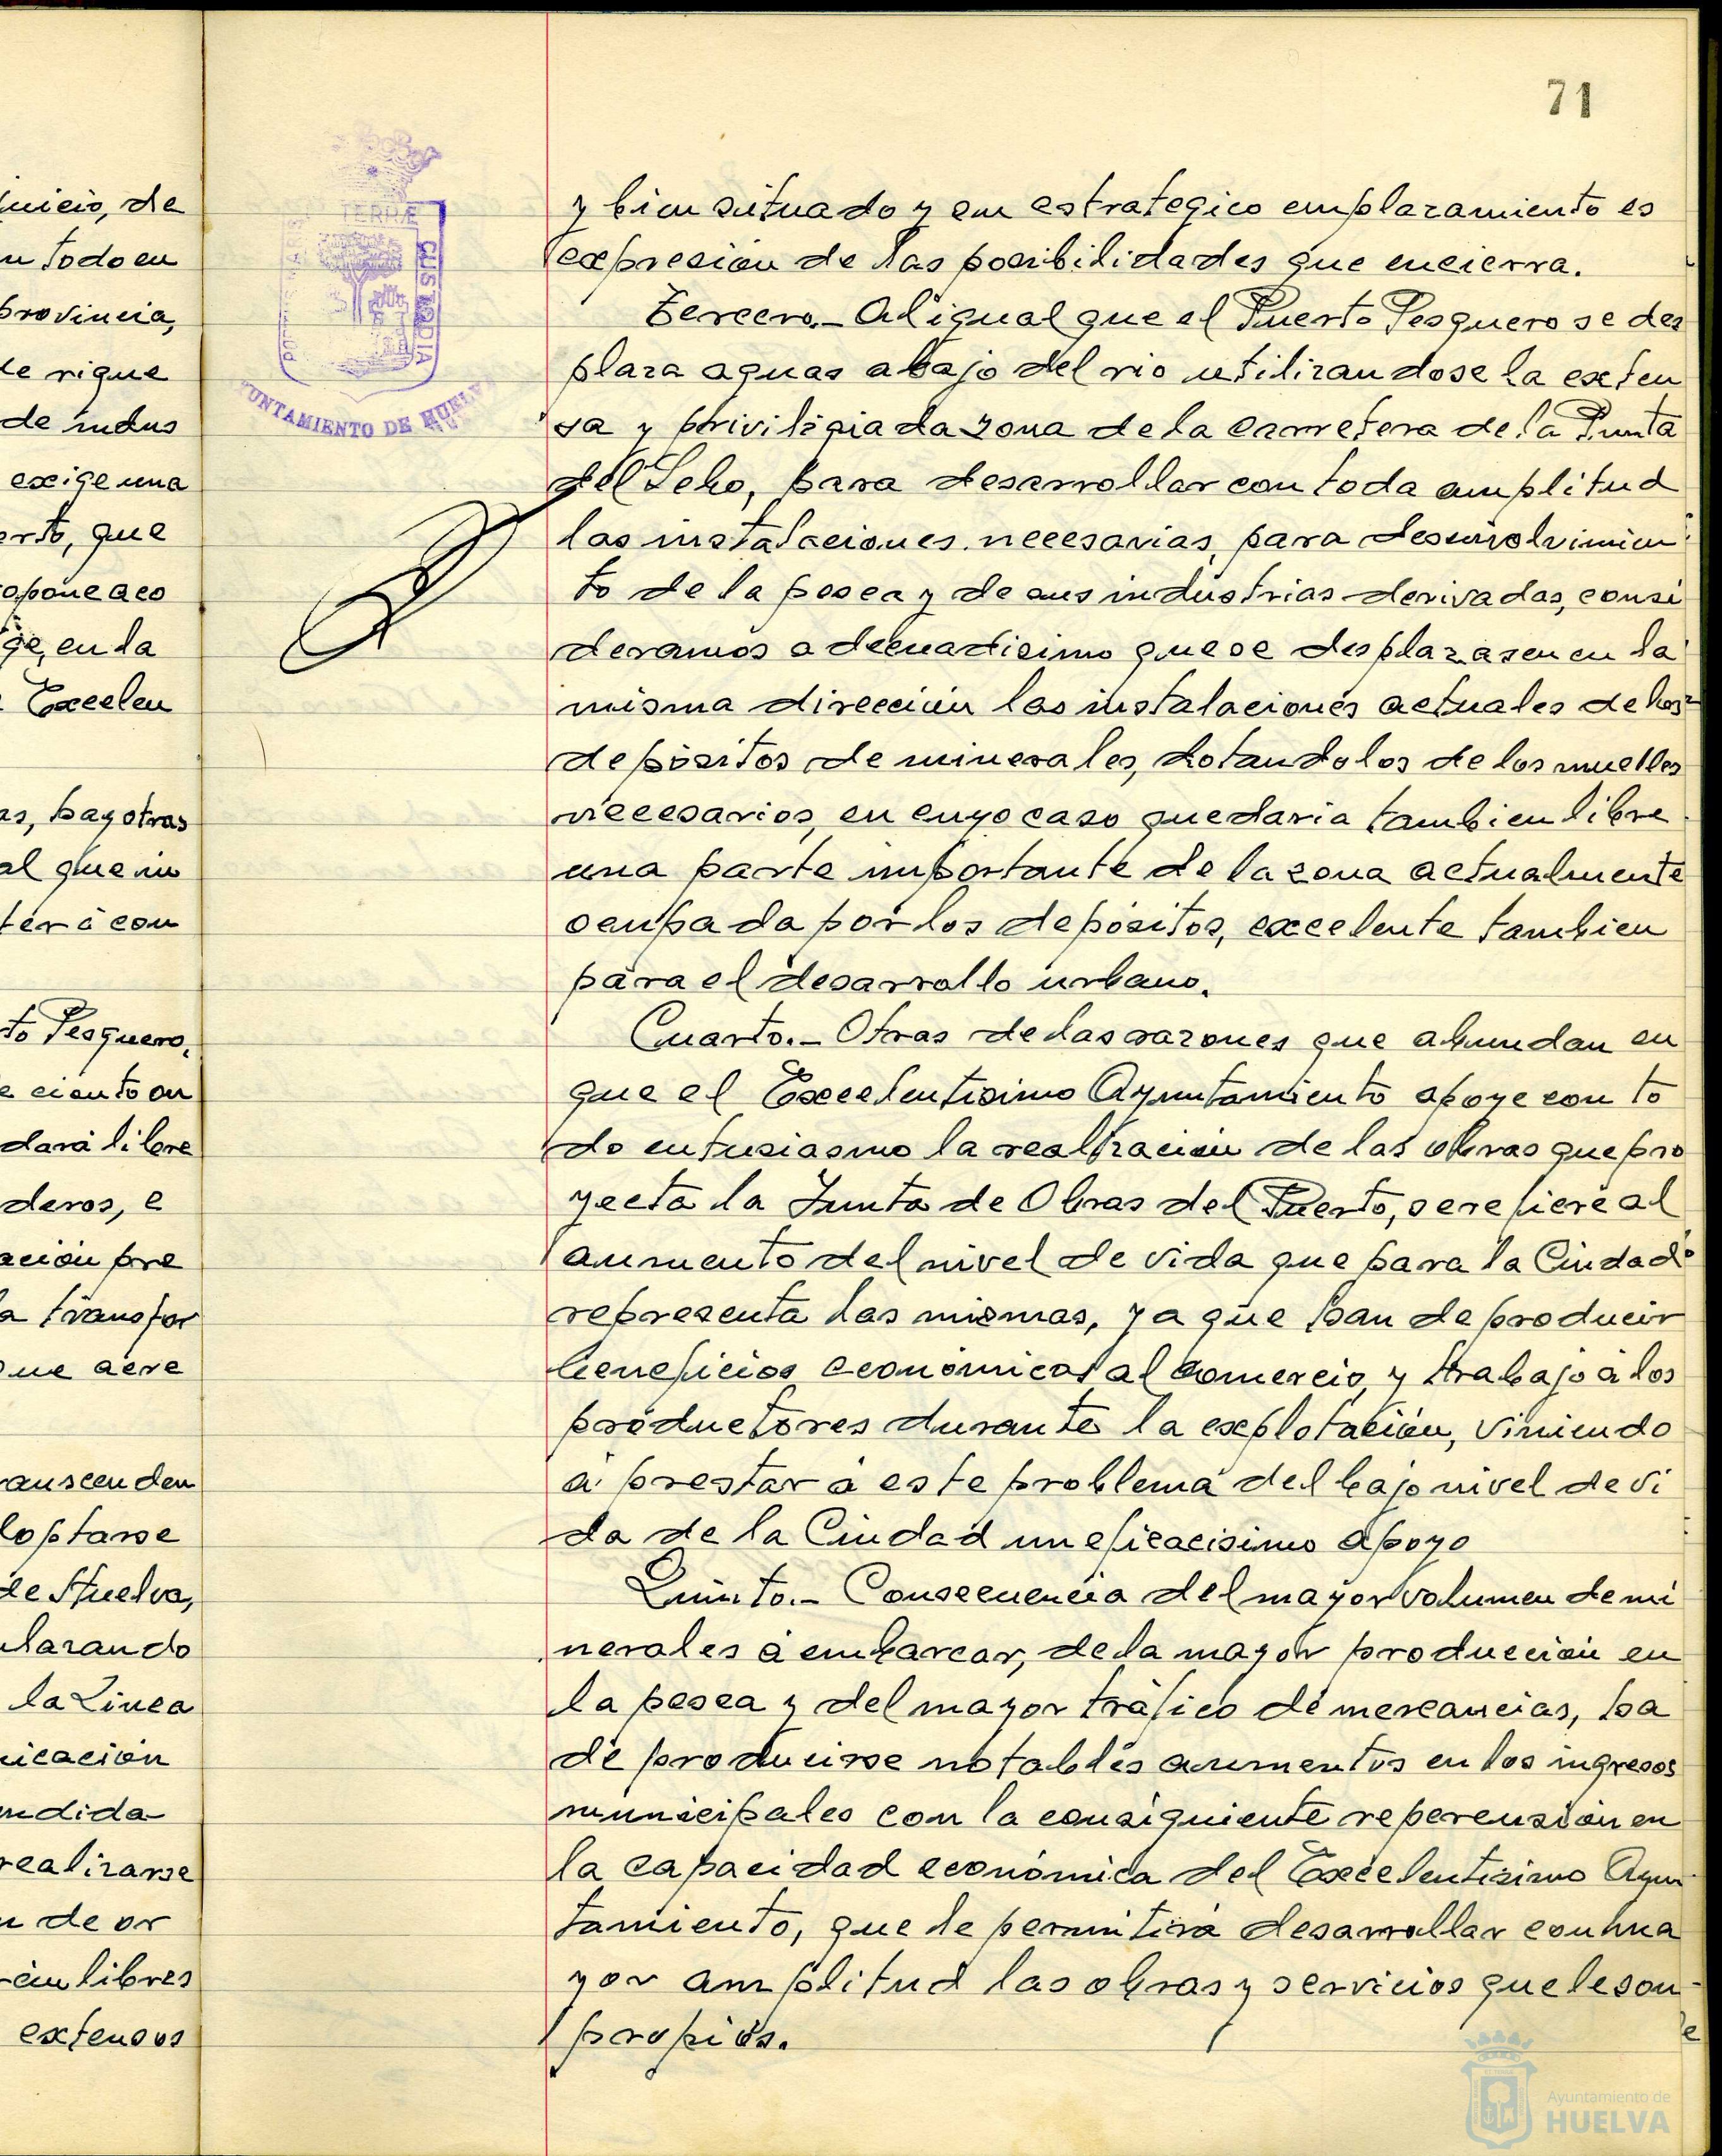 71
y bien situado y en estrategico emplazamiento es
expresión de las posibilidades que encierra.
Tercero.- Al igual que el Puerto Pesquero se des
plaza aguas abajo del rio utilizandose la exten
sa y priviligiada zona de la carretera de la Punta
del Sebo, para desarrollar con toda amplitud
las instalaciones necesarias, para desenvolvimien
to de la pesca y de sus industrias derivadas, consi
deramos adecuadisimo que se desplazasen en la
misma dirección las instalaciones actuales de los
depósitos de minerales, dotandolos de los muelles
necesarios, en cuyo caso quedaria tambien libre
una parte importante de la zona actualmente
ocupada por los depósitos, excelente tambien
para el desarrollo urbano.
Cuarto.- Otras de las razones que abundan en
que el Excelentisimo Ayuntamiento apoye con to
do entusiasmo la realización de las obras que pro
yecta la Junta de Obras del Puerto, se refiere al
aumento del nivel de vida que para la Ciudad
representa las mismas, ya que han de producir
beneficios económicos al comercio, y trabajo á los
productores durante la explotación, viniendo
á prestar á este problema del bajo nivel de vi
da de la Ciudad un eficacisimo apoyo
Quinto.- Consecuencia del mayor volumen de mi
nerales á embarcar, de la mayor producción en
la pesca y del mayor tráfico de mercancias, ha
de producirse notables aumentos en los ingresos
municipales con la consiguiente repercusión en
la capacidad económica del Excelentisimo Ayun
tamiento, que le permitirá desarrollar con ma
yor amplitud las obras y servicios que le son
propios.
TERRÆ
CUSTODIA
AYUNTAMIENTO DE HUELVA
de
todo en
provincia,
rigue
de indus
exige una
que
en la
Excelen
hay otras
al que
con
Pesquero,
ciento
libre
deros, e
pre
la transfor
que
transcenden
Huelva,
la Linea
realizarse
de or
libres
extensos
Ayuntamiento de
HUELVA